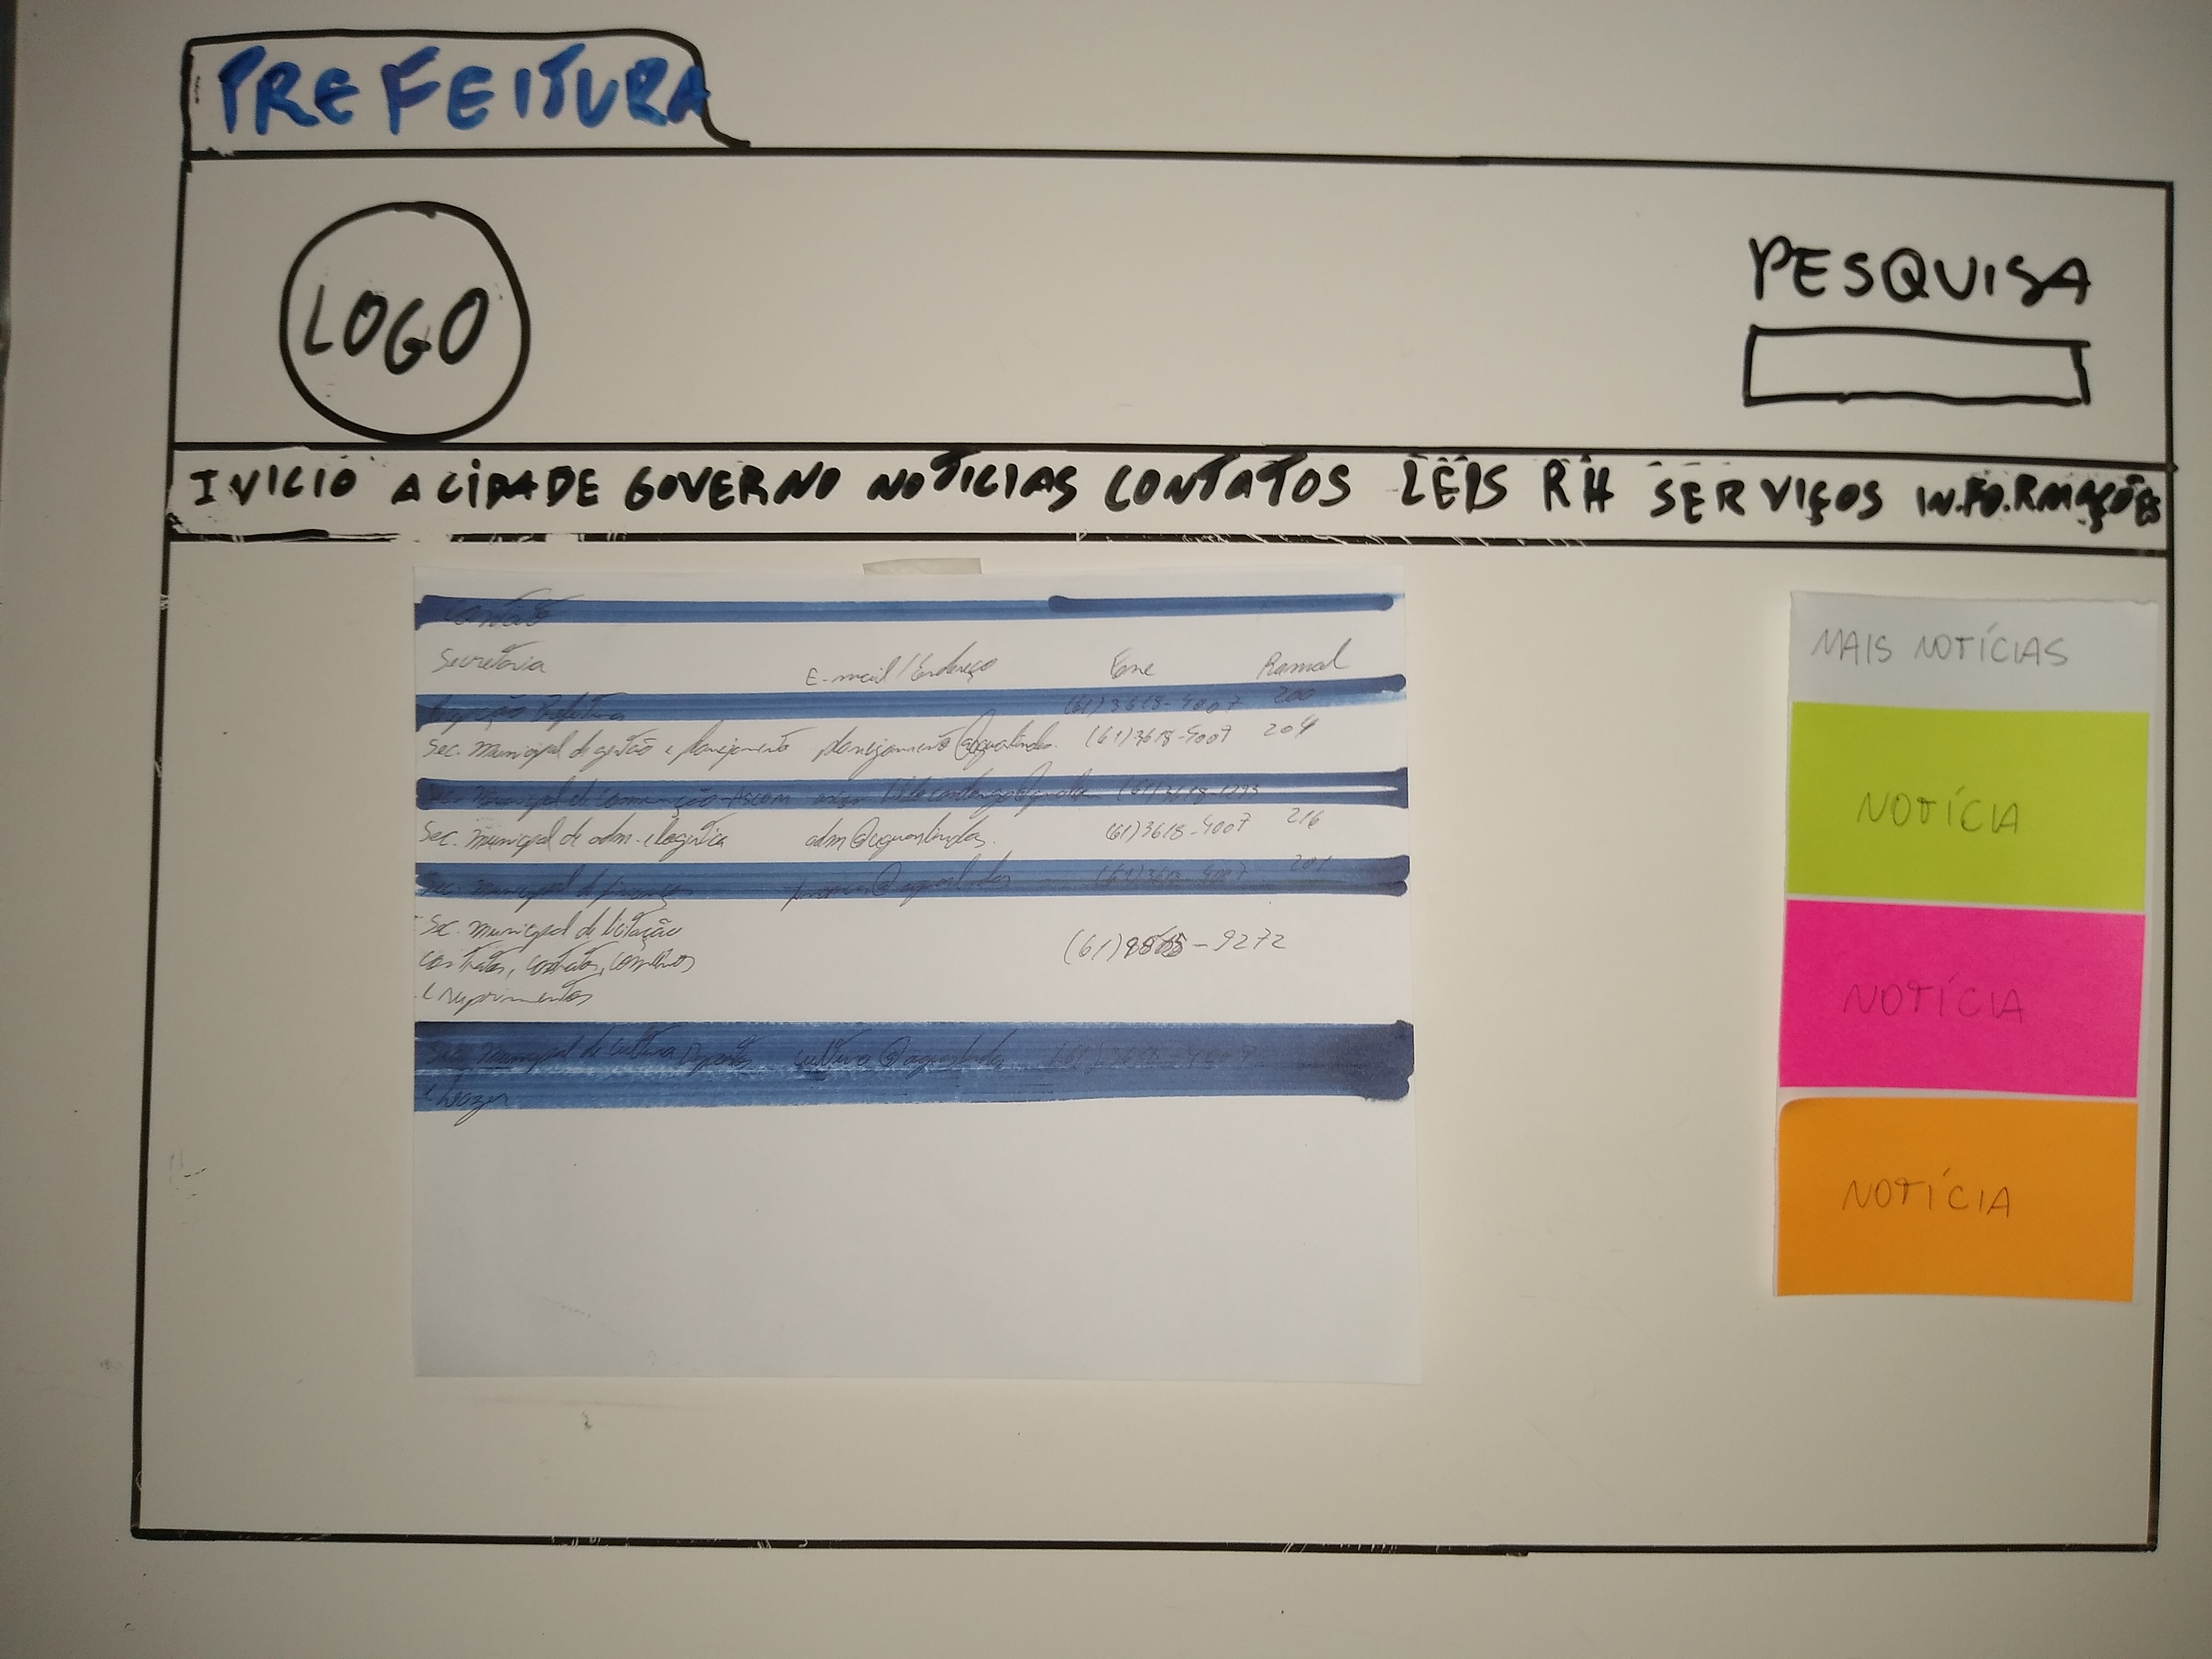 PREFEITURA
LOGO
PESQUISA
INICIO A CIDADE GOVERNO NOTICIAS CONTATOS LEIS RH SERVIÇOS INFORMAÇÕES
Contato
Secretaria E-mail/Endereço Fone Ramal
Prefeitura (61)3618-4007 200
Sec. Municipal de gestão e planejamento planejamento@aguaslindas. (61)3618-4007 204
Sec. Municipal de Comunicação-Ascom (61)3618-1293
Sec. Municipal de adm. e logística adm@aguaslindas. (61)3618-4007 216
Sec. Municipal de finanças @aguaslindas (61)3618-4007 201
Sec. Municipal de licitação
contratos, convênios
e suprimentos
(61) -9272
Sec. Municipal de Cultura Desporto cultura@aguaslindas (61)3618-4007
e Lazer
MAIS NOTÍCIAS
NOTÍCIA
NOTÍCIA
NOTÍCIA